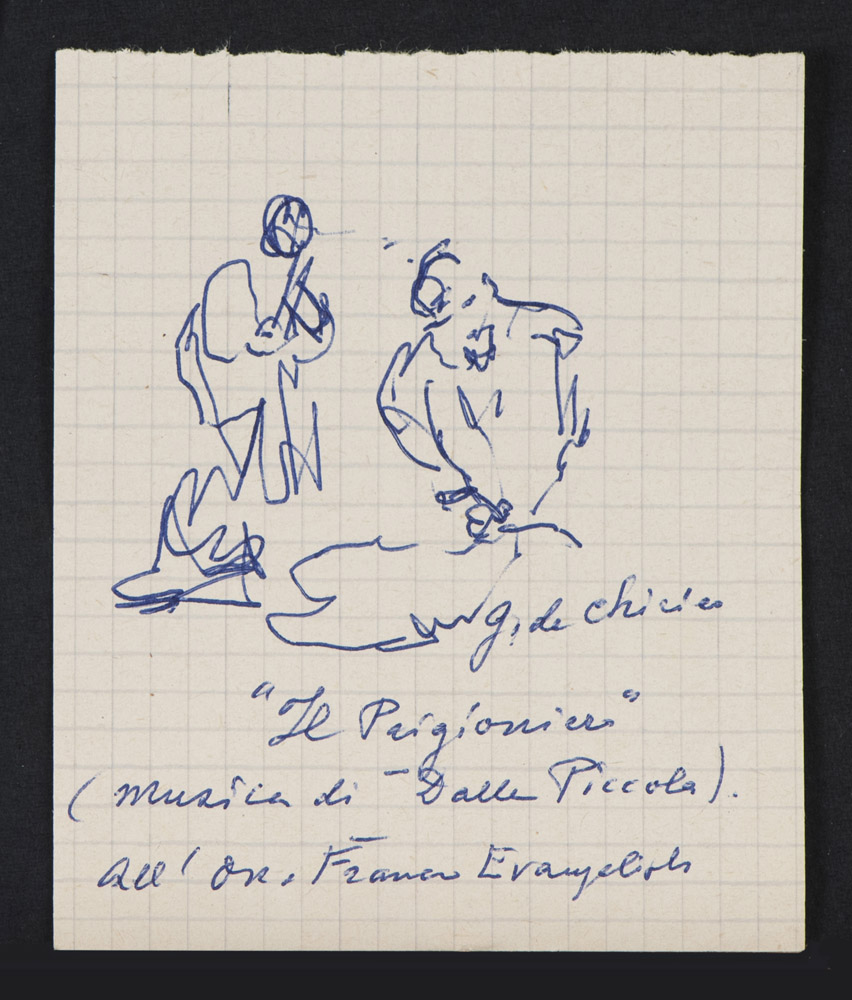 g. de Chirico
"Il Prigioniero"
(musica di Dalla Piccola).
all' On. Franco Evangelisti